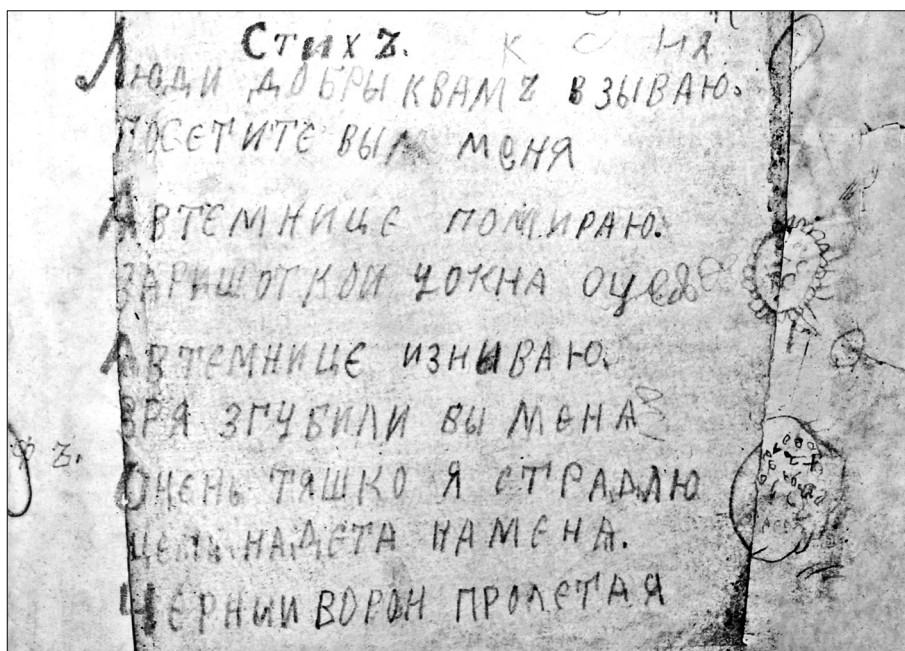 Стихъ.
Люди добры квамъ взываю.
посетите вы меня
Автемнице помираю.
заришоткой уокна
Автемнице изниваю.
зря згубили вы мена
Очень тяшко я страдаю
цепь надета намена.
Черний ворон пролетая